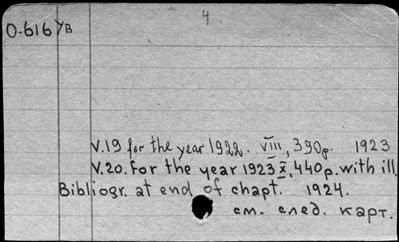 4
O-616 YB
V.19 for the year 1922. VIII, 390p. 1923
V.20. For the year 1923 X, 440p. with ill.
Bibliogr. at end of chapt. 1924.
см. след. карт.